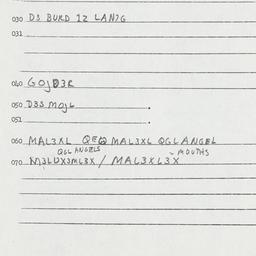 030 D3 BURD 12 LAN7G
031
040 GOJD3R
050 D33 MOJL .
051 .
060 MAL3XL QEQ MAL3XL QGL ANGEL
QGL ANGELS - MOUTHS
070 M3LDX3ML3X / MAL3XL3X